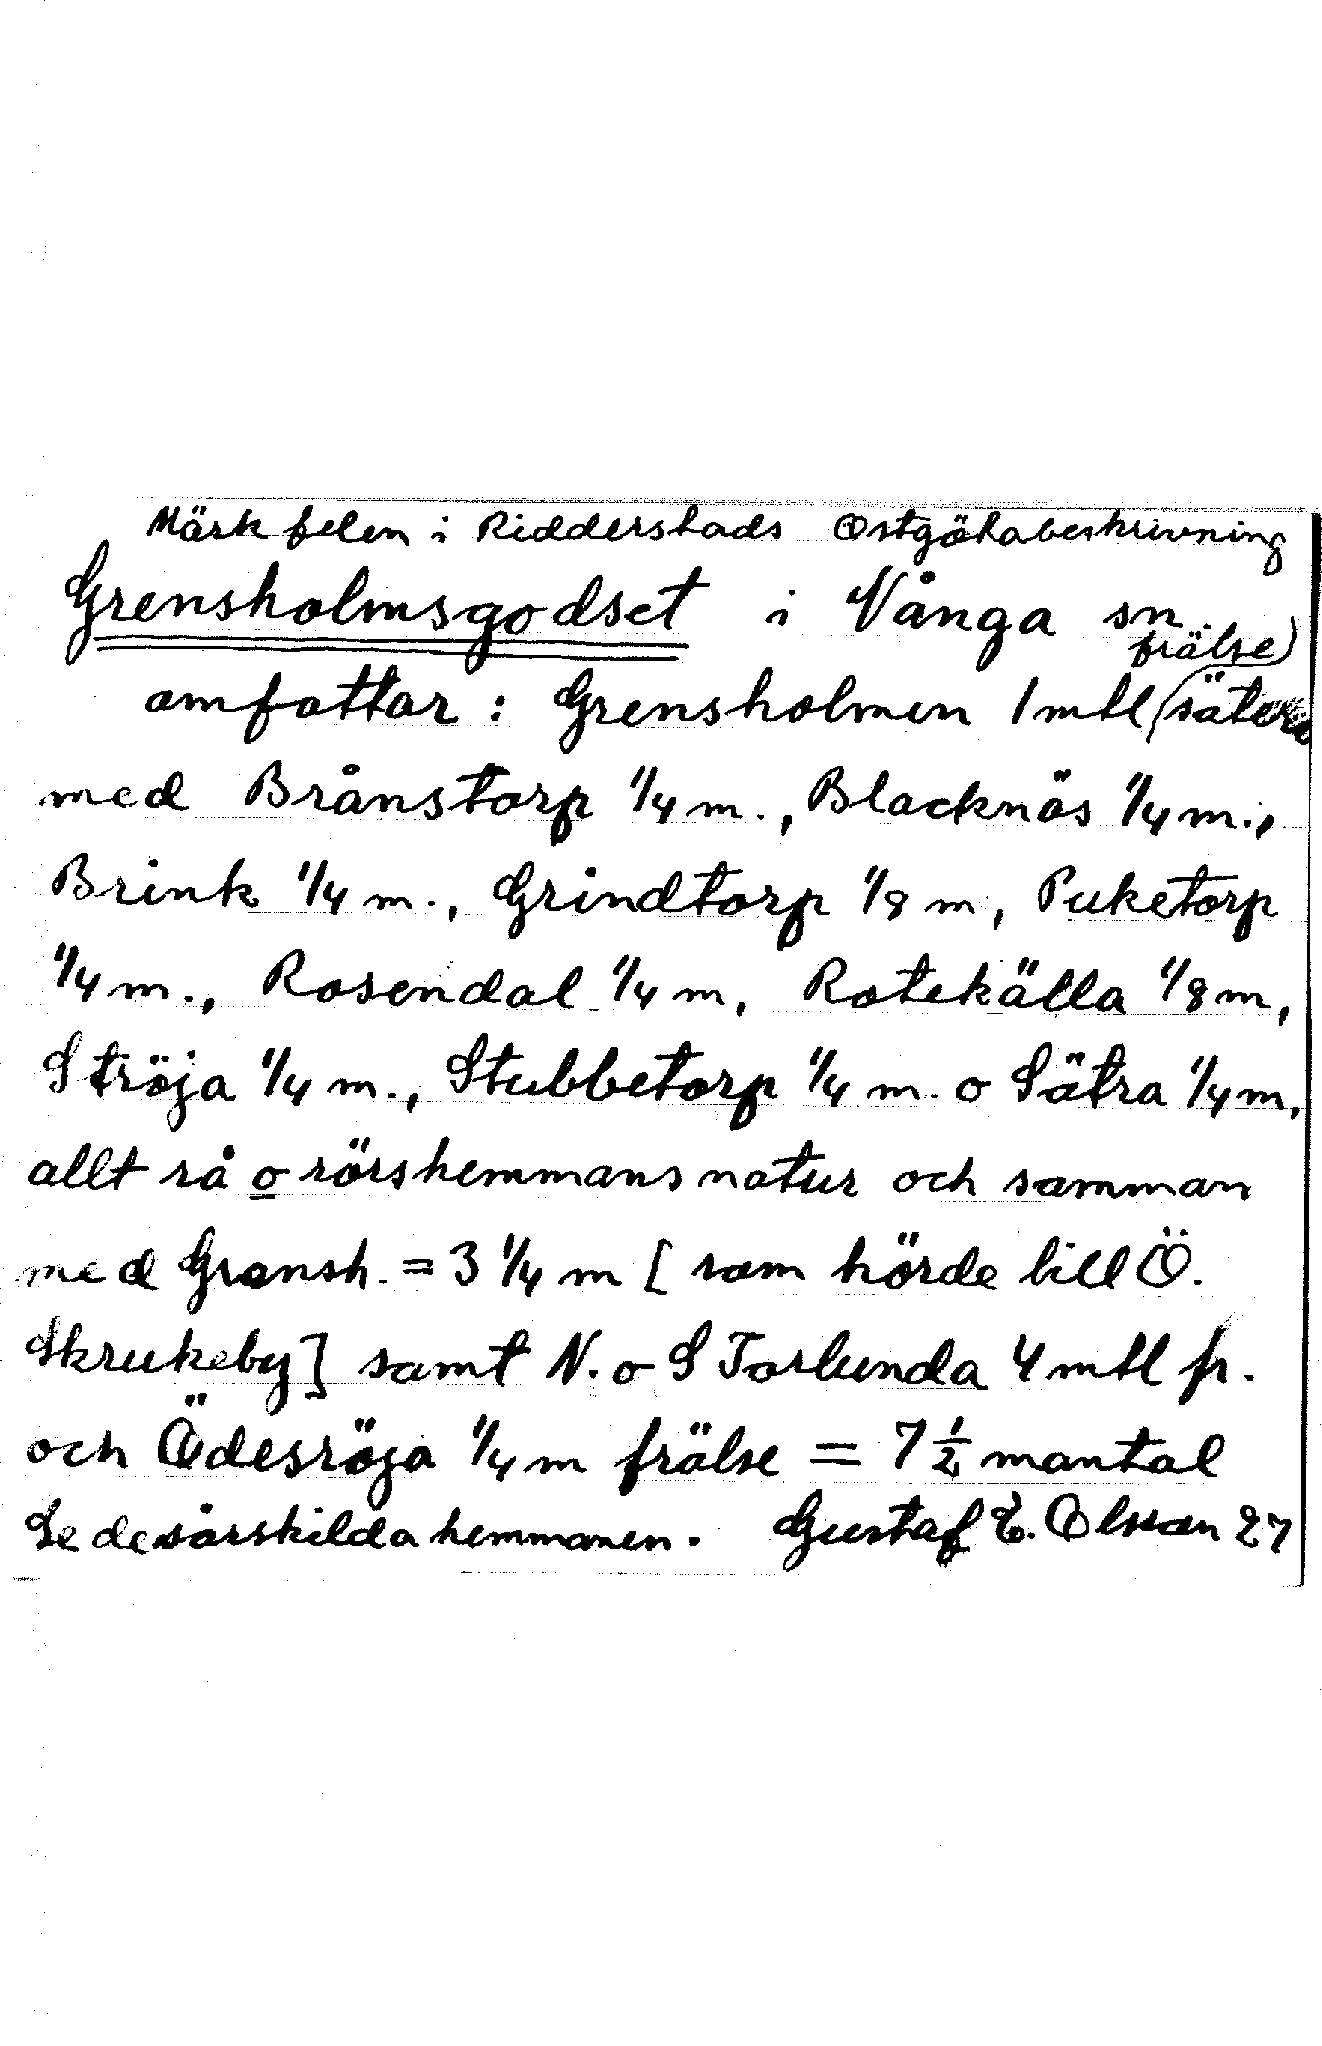 Märk felen i Ridderstads Östgötabeskrivning
Grensholmsgodset i Vånga sn.
omfattar: Grensholmen 1 mtl (säteri frälse)
med Brånstorp 1/4 m., Blacknäs 1/4 m.,
Brink 1/4 m., Grindtorp 1/8 m, Puketorp
1/4 m., Rosendal 1/4 m, Rotekälla 1/8 m,
Ströja 1/4 m., Stubbetorp 1/4 m. o Sätra 1/4 m,
allt rå o rörshemmans natur och samman
med Grensh. = 3 1/4 m [som hörde till Ö.
Skrukeby] samt N. o S Torlunda 4 mtl fr.
och Ödesröja 1/4 m frälse = 7 1/2 mantal
Se de särskilda hemmanen. Gustaf E. Olsson 27